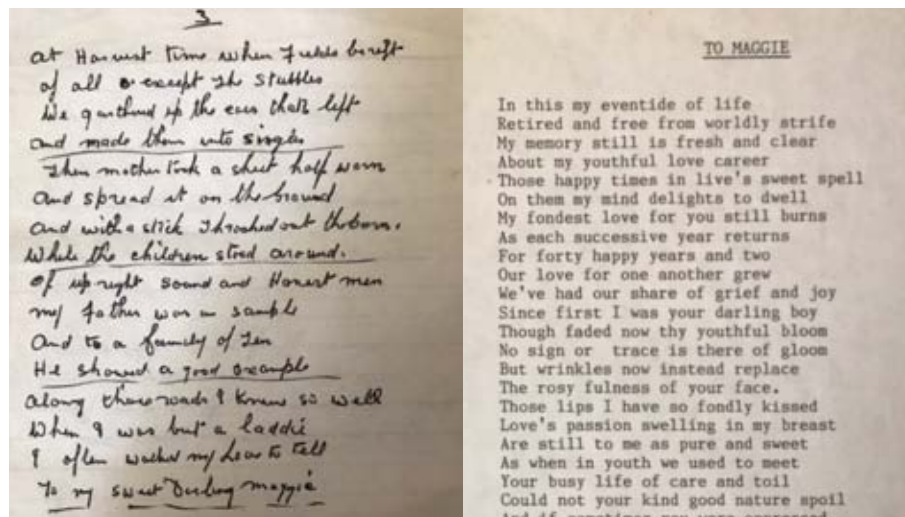 3
at Harvest time when Fields bereft
of all except the Stubbles
We gathered up the ears that's left
and made them into singles
Then mother took a sheet half worn
and spread it on the Ground
and with a stick Thrashed out the
While the children stood around.
of upright sound and Honest men
my father was a sample
and to a family of Ten
He showed a good example
along those roads I knew so well
When I was but a laddie
I often walked my love to tell
To my sweet Darling maggie
TO MAGGIE
In this my eventide of life
Retired and free from worldly strife
My memory still is fresh and clear
About my youthful love career
Those happy times in live's sweet spell
On them my mind delights to dwell
My fondest love for you still burns
As each successive year returns
For forty happy years and two
Our love for one another grew
We've had our share of grief and joy
Since first I was your darling boy
Though faded now thy youthful bloom
No sign or trace is there of gloom
But wrinkles now instead replace
The rosy fulness of your face.
Those lips I have so fondly kissed
Love's passion swelling in my breast
Are still to me as pure and sweet
As when in youth we used to meet
Your busy life of care and toil
Could not your kind good nature spoil